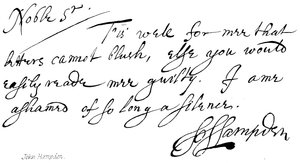 Noble Sr.
T'is well for mee that
letters cannot blush, else you would
easily reade mee guilty. I am
ashamed of so long a silence.
Jo Hampden
John Hampden.